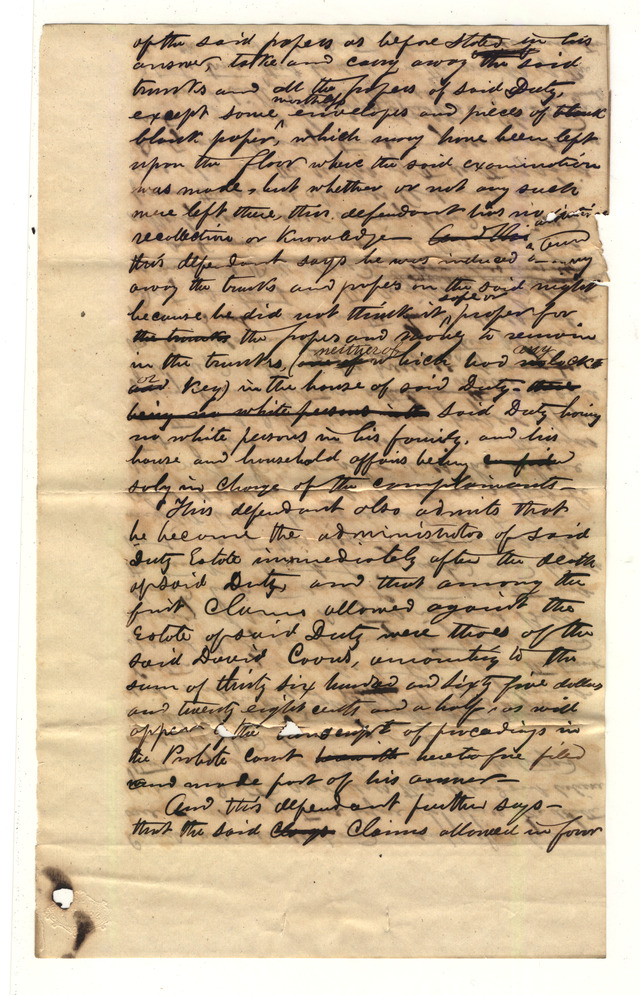 of the said papers as before stated in his
answer, take and carry away the said
trunks and all the papers of said Duty,
except some worthless envelopes and pieces of blank
blank paper, which may have been left
upon the floor where the said examination
was made, but whether or not any such
were left there, this defendant has no
recollection or knowledge And this
this defendant says he was induced
away the trunks and papers on the said night
because he did not think it safe or proper for
the trunks the papers and money to remain
in the trunks, neither of which had any locks
or Key) in the house of said Duty
being no white persons said Duty having
no white persons in his family, and his
house and household affairs being
soly in charge of the complainants
This defendant also admits that
he became the administrator of said
Duty Estate immediately after the death
of said Duty, and that among the
first Claims allowed against the
Estate of said Duty were those of the
said David Coons, amounting to the
sum of thirty six hundred and sixty five dollars
and twenty eight cents and a half, as will
appear the transcript of proceedings in
the Probate Court heretofore filed
and made part of his answer
And this defendant further says
that the said Claims allowed in favor